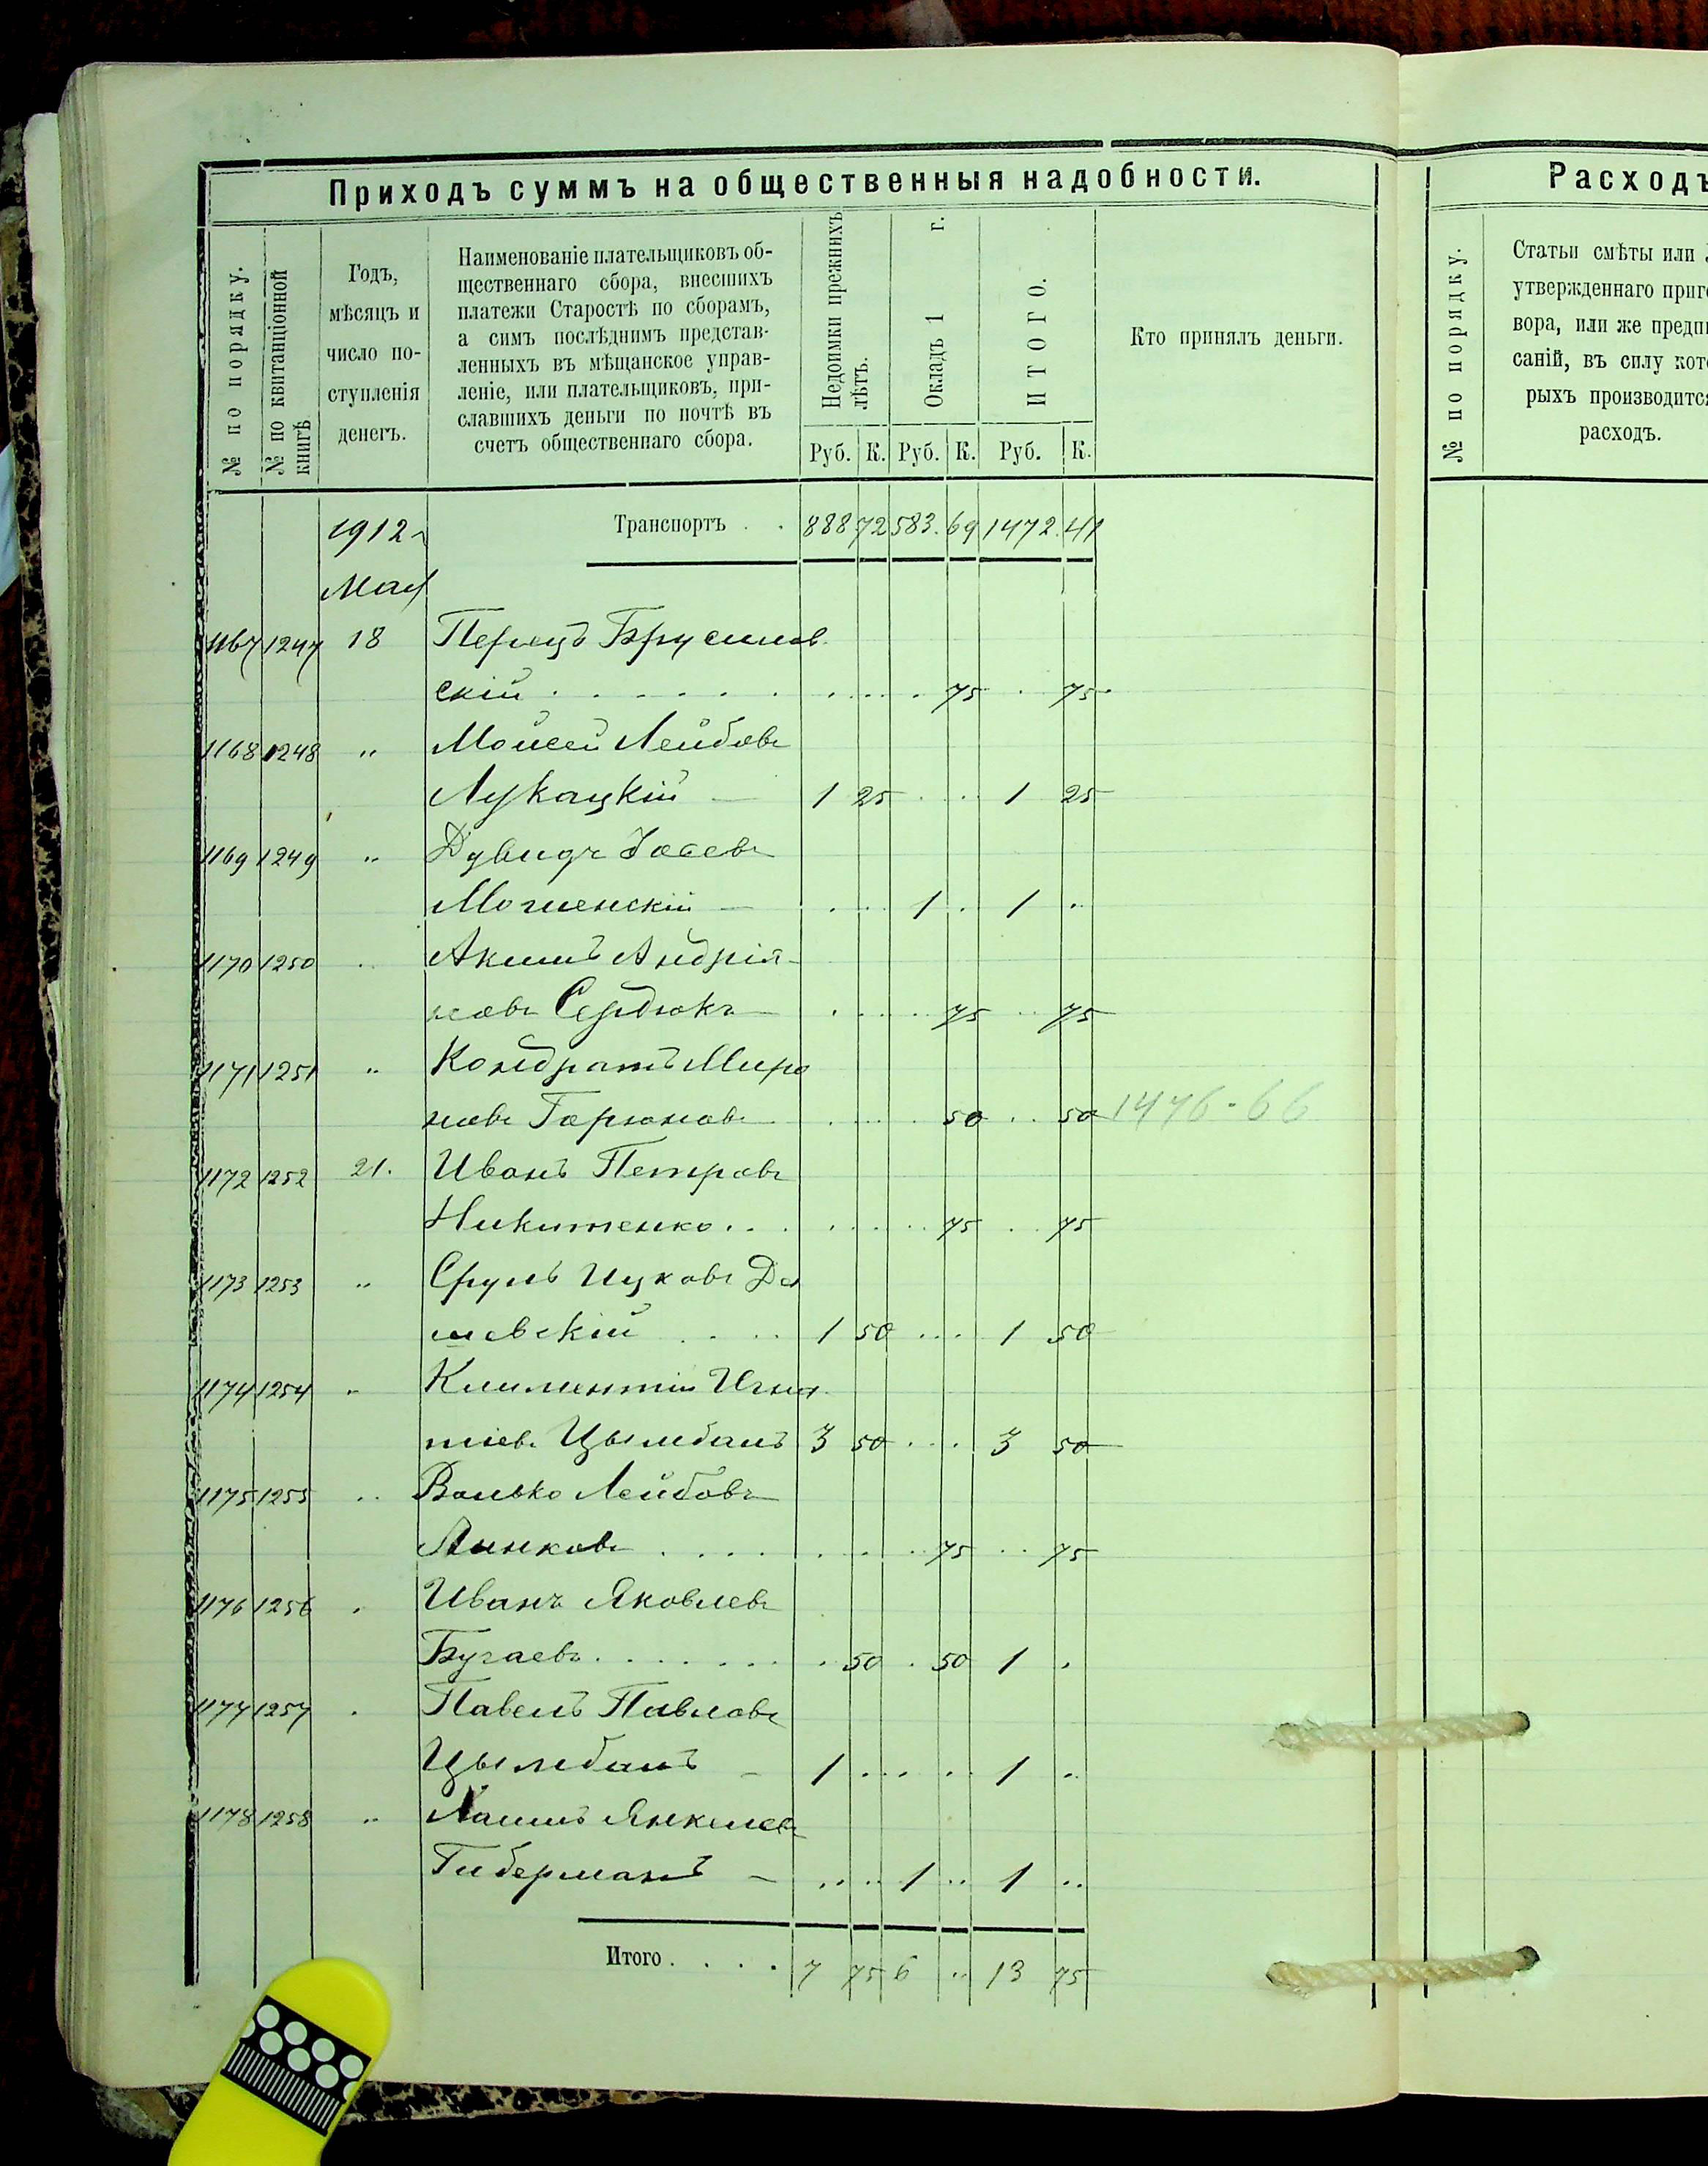 Приходъ суммъ на общественныя надобности.
№ по порядку.
№ по квитанціонной книгѣ
Годъ,
мѣсяцъ и
число по-
ступленія
денегъ.
Наименованіе плательщиковъ об-
щественнаго сбора, внесшихъ
платежи Старостѣ по сборамъ,
а симъ послѣднимъ представ-
ленныхъ въ мѣщанское управ-
леніе, или плательщиковъ, при-
славшихъ деньги по почтѣ въ
счетъ общественнаго сбора.
Недоимки прежнихъ лѣтъ.
Окладъ 1 г.
ИТОГО.
Руб. К. Руб. К. Руб. К.
Кто принялъ деньги.
1912 Транспортъ . . 888 72 583. 69 1472. 41
Мая
1167 1247 18 Перецъ Брусилов
скій . . . . . . 75 . 75
1168 1248 " Мойсей Лейбовъ
Лукацкій — 1 25 . . . 1 25
1169 1249 " Дувидъ Іосевъ
Могиенскій — . . . 1 . 1 .
1170 1250 " Акимъ Андрія-
новъ Сердюкъ — . . . . 75 . . 75
1171 1251 " Кондратъ Миро
новъ Горюновъ . . . . 50 . . 50 1476-66
1172 1252 21. Иванъ Петровъ
Никитенко . . . . . . 75 . . 75
1173 1253 " Сруль Ицковъ Да
шевскій . . . . 1 50 . . . 1 50
1174 1254 " Климентій Игна
тіевъ Цымбалъ 3 50 . . . 3 50
1175 1255 " Волько Лейбовъ
Линковъ . . . . . . . 75 . . 75
1176 1256 . Иванъ Яковлевъ
Бугаевъ . . . . . . . 50 . 50 1 .
1177 1257 . Павелъ Павловъ
Цымбалъ — 1 . . . . 1 ..
1178 1258 " Хаимъ Янкелев
Гиберманъ — .. .. 1 .. 1 ..
Итого . . . . 7 75 6 .. 13 75
Расходъ
№ по порядку.
Статьи смѣты или
утвержденнаго приго
вора, или же предпи
саній, въ силу кото
рыхъ производится
расходъ.